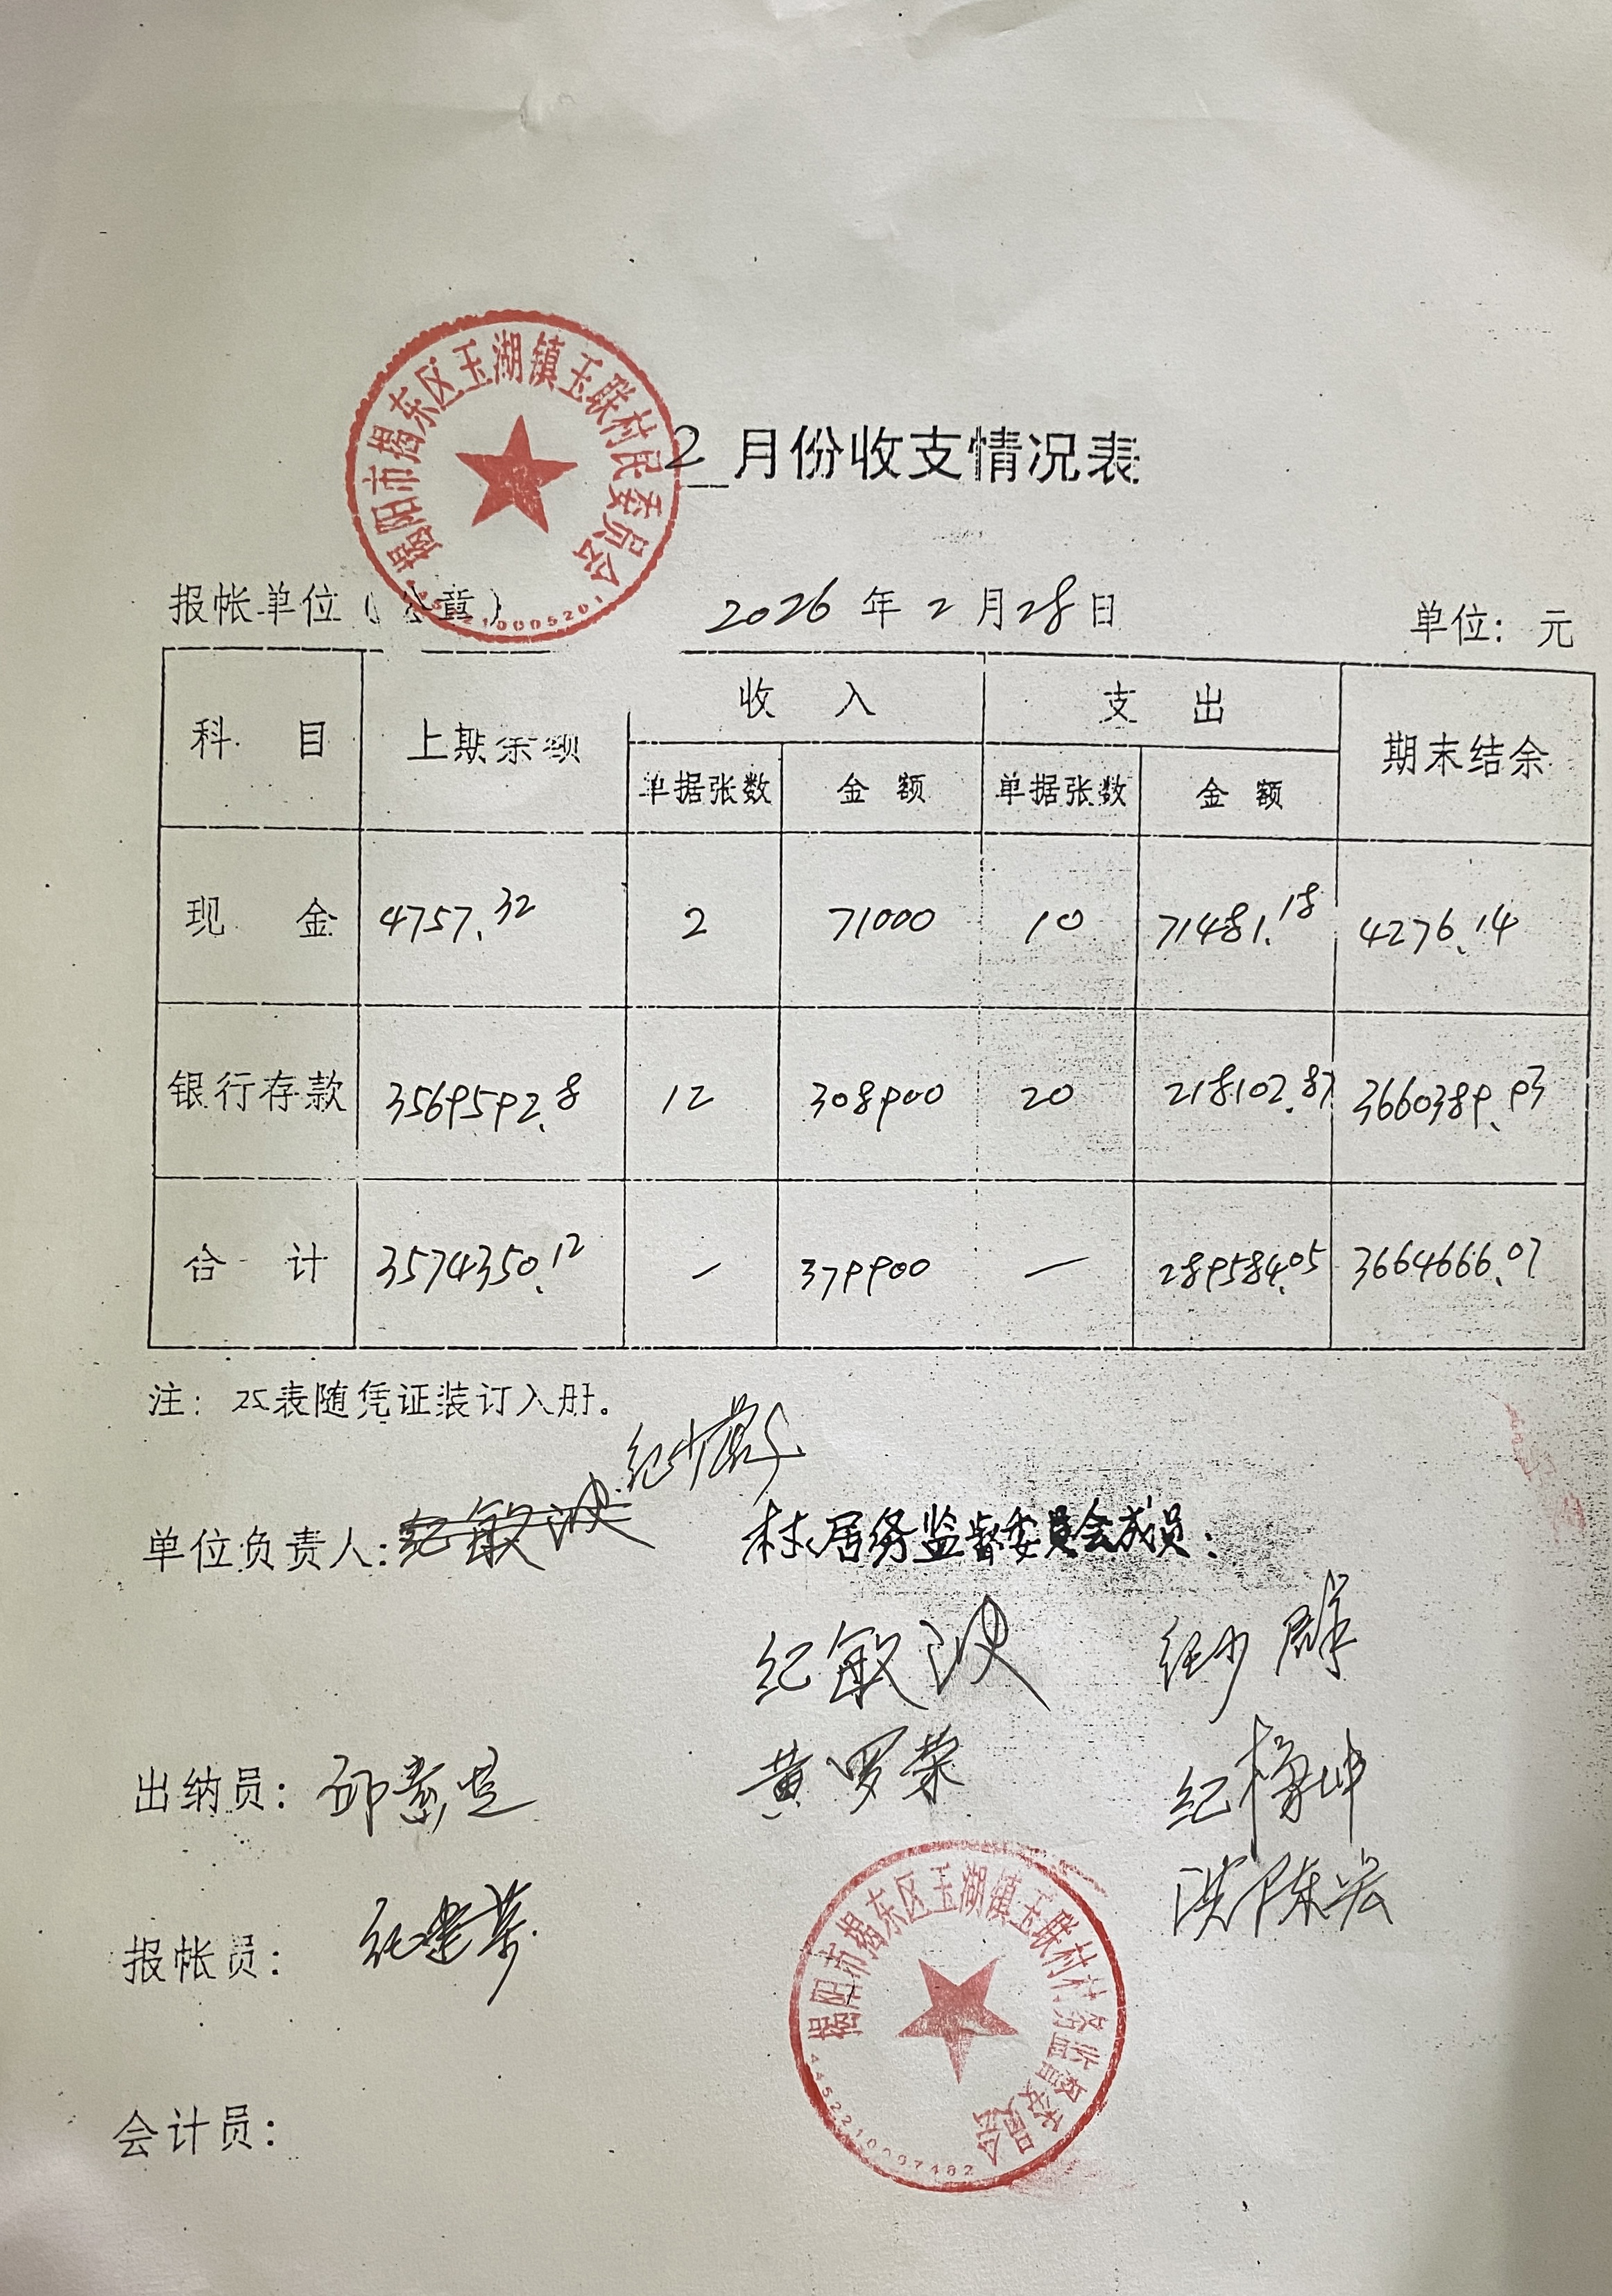 揭阳市揭东区玉湖镇玉联村民委员会
2月份收支情况表
报帐单位（公章） 2026年2月28日 单位：元
科目 上期余额 收入 支出 期末结余
单据张数 金额 单据张数 金额
现金 4757.32 2 71000 10 71481.18 4276.14
银行存款 3569592.8 12 308900 20 218102.87 3660389.93
合计 3574350.12 — 379900 — 289584.05 3664666.07
注：本表随凭证装订入册。
纪少群
单位负责人：纪敏波 村居务监督委员会成员：
纪敏波 纪少群
出纳员： 黄罗荣 纪 坤
报帐员： 洪陈宏
揭阳市揭东区玉湖镇玉联村村务监督委员会
4452210007482
会计员：